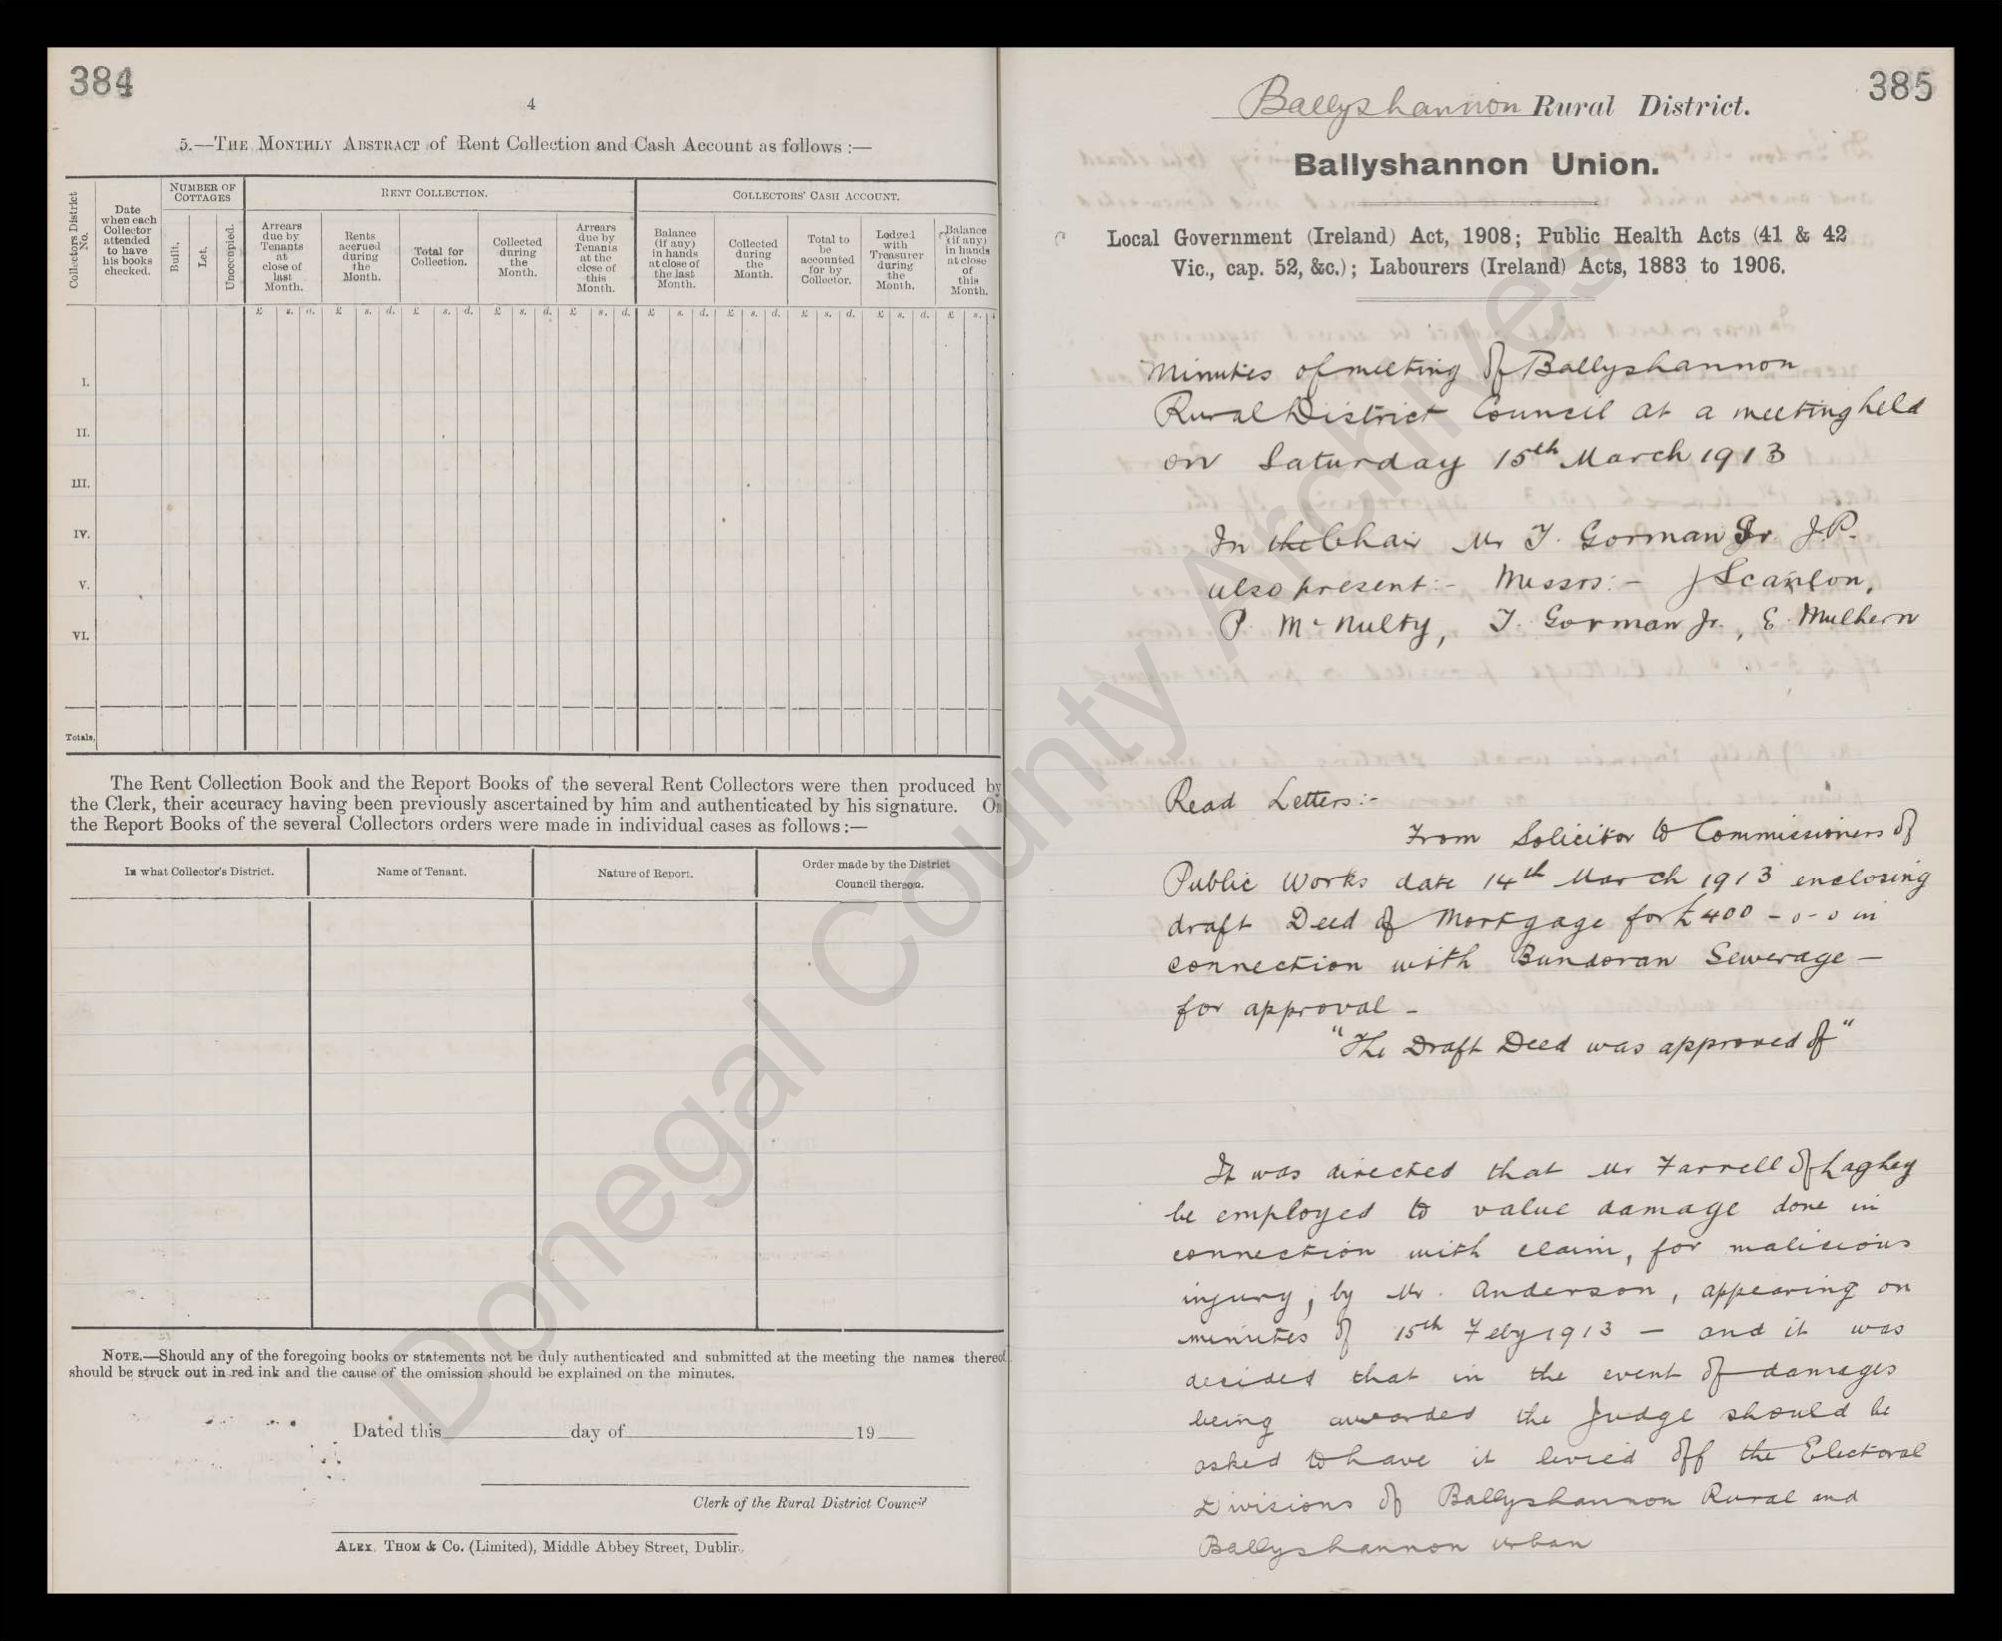 384
4
5.—The Monthly Abstract of Rent Collection and Cash Account as follows :—
Collectors District No.
Date when each Collector attended to have his books checked.
Number of Cottages
Built.
Let.
Unoccupied.
Rent Collection.
Arrears due by Tenants at close of last Month.
Rents accrued during the Month.
Total for Collection.
Collected during the Month.
Arrears due by Tenants at the close of this Month.
Collectors' Cash Account.
Balance (if any) in hands at close of the last Month.
Collected during the Month.
Total to be accounted for by Collector.
Lodged with Treasurer during the Month.
Balance (if any) in hands at close of this Month.
£ s. d. £ s. d. £ s. d. £ s. d. £ s. d. £ s. d. £ s. d. £ s. d. £ s. d. £ s.
I.
II.
III.
IV.
V.
VI.
Totals,
The Rent Collection Book and the Report Books of the several Rent Collectors were then produced by
the Clerk, their accuracy having been previously ascertained by him and authenticated by his signature. On
the Report Books of the several Collectors orders were made in individual cases as follows:—
In what Collector's District.
Name of Tenant.
Nature of Report.
Order made by the District
Council thereon.
Note.—Should any of the foregoing books or statements not be duly authenticated and submitted at the meeting the names thereof
should be struck out in red ink and the cause of the omission should be explained on the minutes.
Dated this day of 19
Clerk of the Rural District Council
Alex. Thom & Co. (Limited), Middle Abbey Street, Dublin.
385
Ballyshannon Rural District.
Ballyshannon Union.
Local Government (Ireland) Act, 1908; Public Health Acts (41 & 42
Vic., cap. 52, &c.); Labourers (Ireland) Acts, 1883 to 1906.
Minutes of meeting of Ballyshannon
Rural District Council at a meeting held
on Saturday 15th March 1913
In the Chair Mr T. Gorman Sr J.P.
also present:- Messrs:- J Scanlon,
P. McNulty, T. Gorman Jr., E. Mulhern
Read Letters:-
From Solicitor to Commissioners of
Public Works date 14th March 1913 enclosing
draft Deed of Mortgage for £400-0-0 in
connection with Bundoran Sewerage —
for approval -
"The Draft Deed was approved of"
It was directed that Mr Farrell of Laghey
be employed to value damage done in
connection with claim, for malicious
injury, by Mr. Anderson, appearing on
minutes of 15th Feby 1913 — and it was
decided that in the event of damages
being awarded the Judge should be
asked to have it levied off the Electoral
Divisions of Ballyshannon Rural and
Ballyshannon Urban
Donegal County Archives